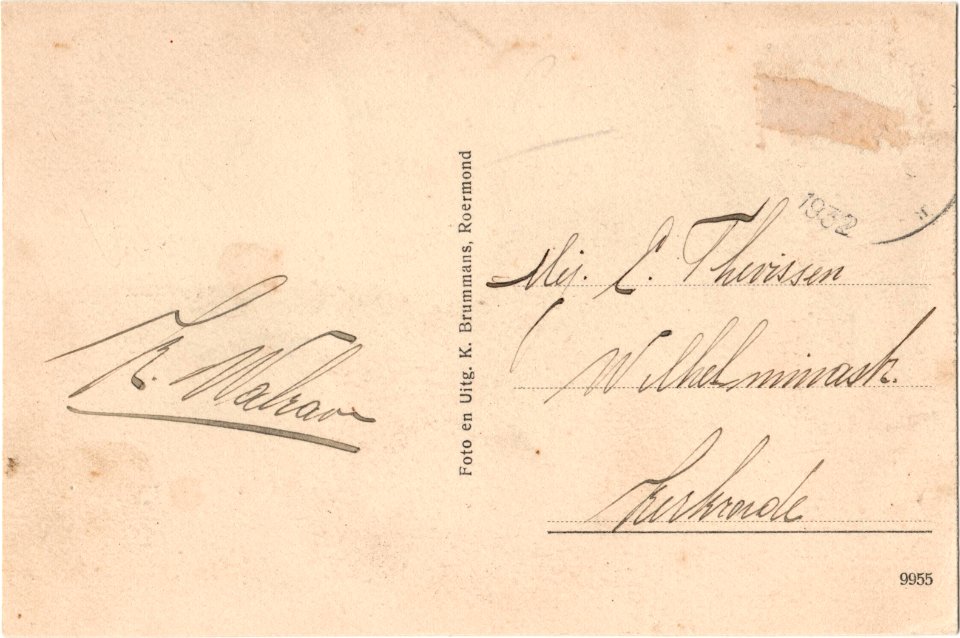 K. Walrave
Foto en Uitg. K. Brummans, Roermond
1932
Mej. C. Thevissen
Wilhelminastr.
Kerkrade
9955